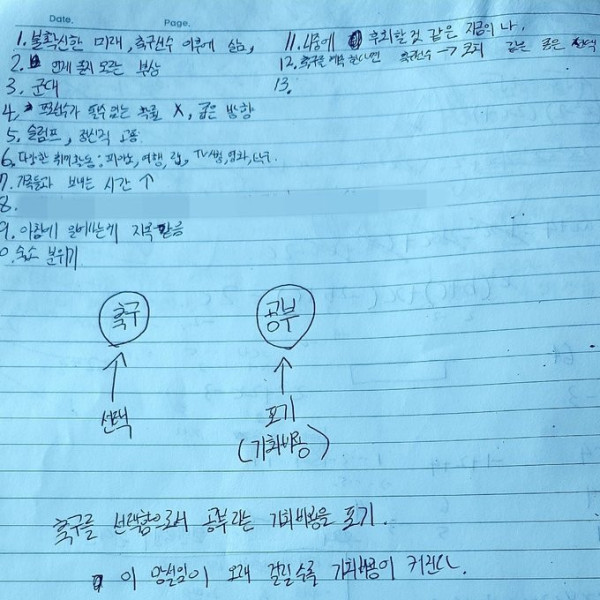 Date. Page.
1. 불확실한 미래, 축구선수 이후에 삶,
2. 언제 올지 모르는 부상
3. 군대
4. 프로선수가 될 수 있는 확률 X, 좁은 방향
5. 슬럼프, 정신적 고통
6. 다양한 취미활동: 피아노, 여행, 랩, TV시청, 영화,
7. 가족들과 보내는 시간 ↑
8.
9. 아침에 일어나는게 지옥같음
0. 숙소 분위기
11. 나중에 후회할 것 같은 지금의 나.
12. 축구를 계속 한다면 축구선수 → 코치 같은 좁은 선택
13.
축구 공부
선택 포기
(기회비용)
축구를 선택함으로서 공부라는 기회비용을 포기.
이 망설임이 오래 걸릴수록 기회비용이 커진다.